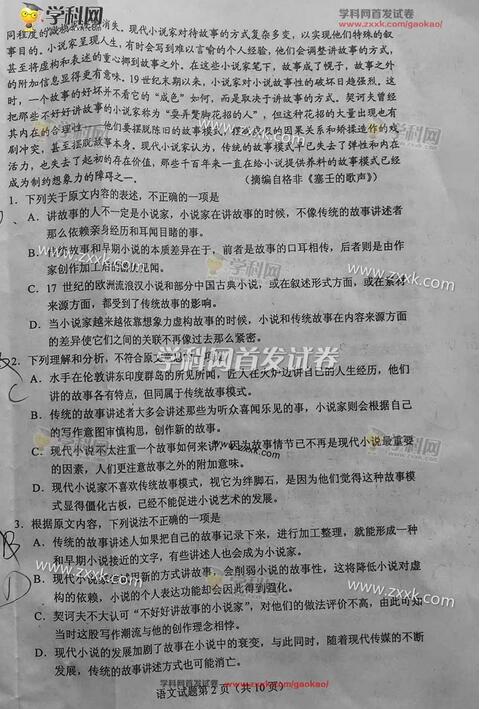 学科网首发试卷
www.zxxk.com/gaokao/
同程度的
消失。现代小说家对待故事的方式复杂多变，以实现他们特殊的叙
事目的。小说家呈现人生，有时会写到难以言喻的个人经验，他们会调整讲故事的方式，
甚至将虚构和表述的重心挪到故事之外。在这些小说家笔下，故事成了幌子，故事之外
的附加信息显得更有意味。19世纪末期以来，小说家对故事性的破坏日趋强烈。这
时，一个故事的好坏并不看它的“成色”如何，而是取决于讲故事的方式。契诃夫曾经
把那些不好好讲故事的小说家称为“耍弄蹩脚花招的人”，但这种花招的大量出现也有
其内在的合理性——他们要摆脱陈旧的故事模式
的因果关系和矫揉造作的戏
剧冲突，甚至摆脱故事本身。现代小说家认为，传统的故事模式早已失去了弹性和内在
活力，也失去了起初的存在价值，那些千百年来一直在给小说提供养料的故事模式已经
成为制约想象力的障碍之一。
（摘编自格非《塞壬的歌声》）
1．下列关于原文内容的表述，不正确的一项是
A．讲故事的人不一定是小说家，小说家在讲故事的时候，不像传统的故事讲述者
那么依赖亲身经历和耳闻目睹的事。
B．传统故事和早期小说的本质差异在于，前者是故事的口耳相传，后者则是由作
家创作加工后的
C．17世纪的欧洲流浪汉小说和部分中国古典小说，或在叙述形式方面，或在素材
来源方面，都受到了传统故事的影响。
D．当小说家越来越依靠想象力虚构故事的时候，小说和传统故事在内容来源方面
的差异使它们之间的关联不再像过去那么紧密。
2．下列理解和分析，不符合原文
A．水手在伦敦讲东印度群岛的所见所闻，匠人在火炉边讲自己的人生经历，他们
讲的故事各有特点，但同属于传统故事模式。
B．传统的故事讲述者大多会讲述那些为听众喜闻乐见的事，小说家则会根据自己
的写作意图审慎构思，创作新的故事。
C．现代小说不太注重一个故事如何来讲，因为故事情节已不再是现代小说最重要
的因素，人们更注意故事之外的附加意味。
D．现代小说家不喜欢传统故事模式，视它为绊脚石，是因为他们觉得这种故事模
式显得僵化古板，已经不能促进小说艺术的发展。
3．根据原文内容，下列说法不正确的一项是
A．传统的故事讲述人如果把自己的故事记录下来，进行加工整理，就能形成一种
和早期小说接近的文字，有些讲述人也会成为小说家。
B．现代小说家以不断创新的方式讲故事，会削弱小说的故事性，这将降低小说对虚
构的依赖，小说的个人表达功能却会因此得到强化。
C．契诃夫不大认可“不好好讲故事的小说家”，对他们的做法评价不高，由此可知
当时这股写作潮流与他的创作理念相悖。
D．现代小说的发展加剧了故事在小说中的衰变，与此同时，随着现代传媒的不断
发展，传统的故事讲述方式也可能消亡。
语文试题第2页（共10页）
学科网首发试卷
www.zxxk.com/gaokao/